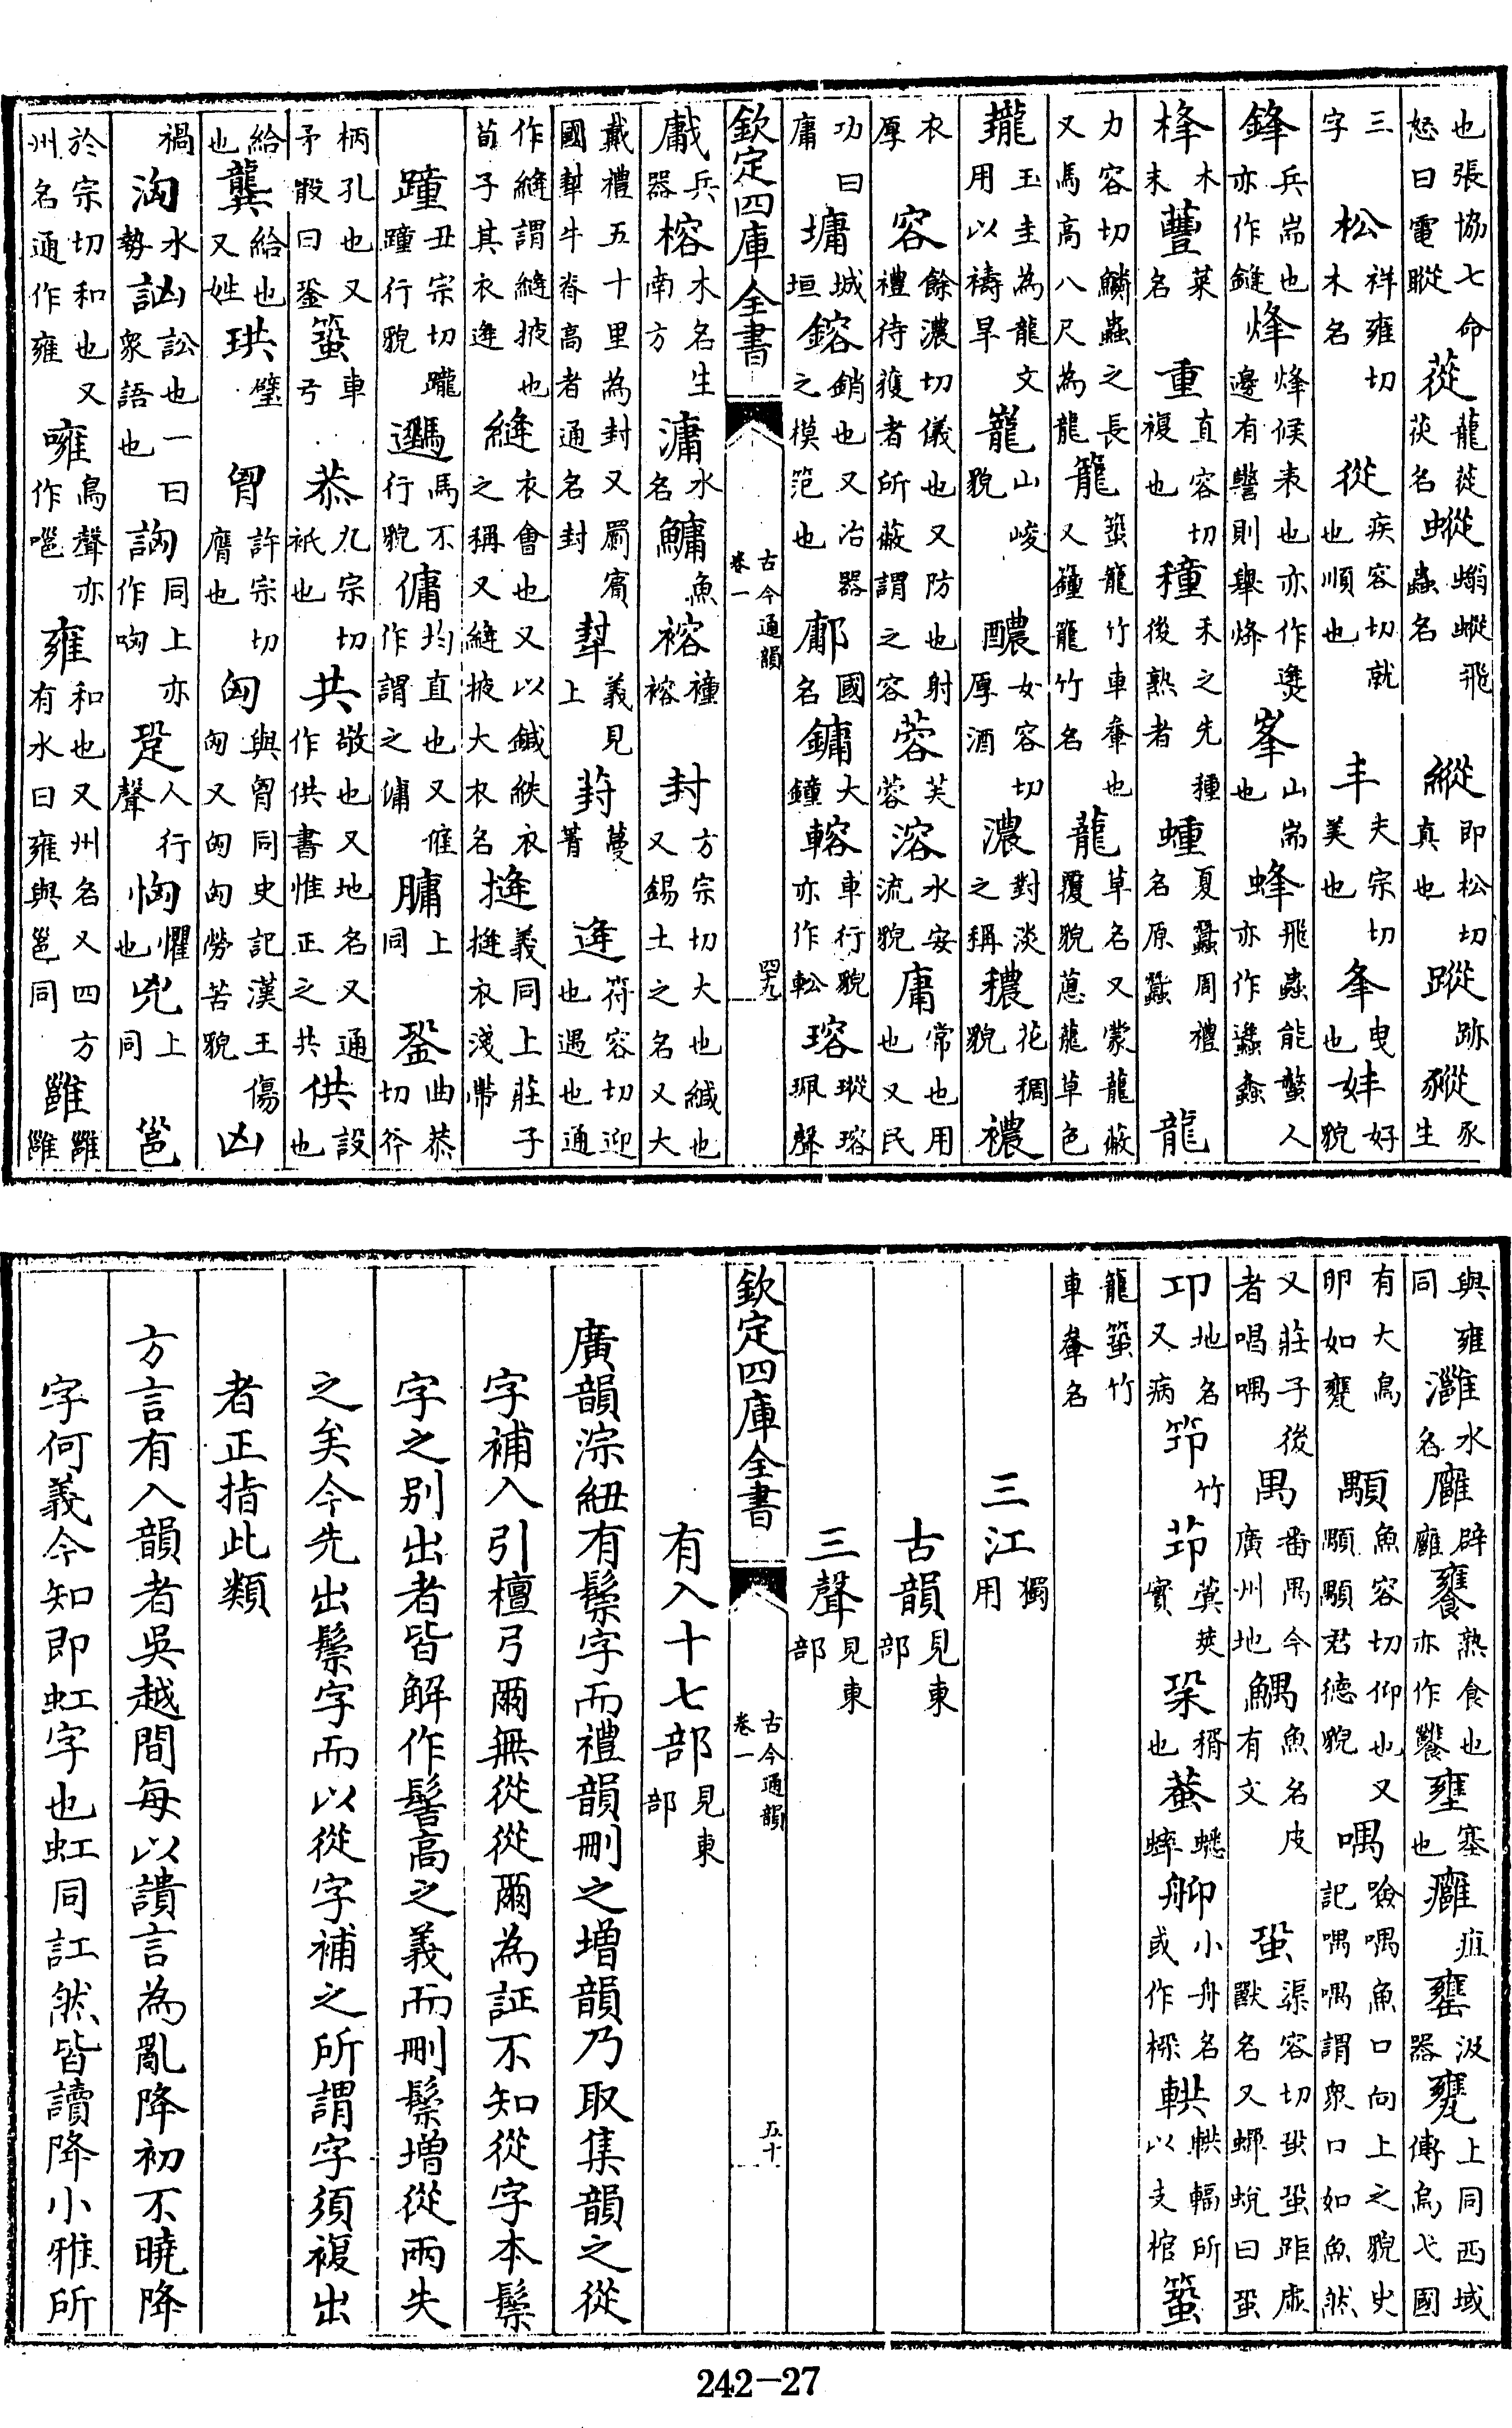 也張協七命怒曰電瞛蓯龍蓯茯名蝬螉蝬飛蟲名縱即松切直也蹤跡豵豕生
三字松祥雍切木名從疾容切就也順也丰夫宗切美也夆曳也妦好貌
鋒兵耑也亦作鏠烽烽候表也亦作㷭邊有警則舉烽峯山耑也蜂飛蟲能螫人亦作䗬蠭
桻木末蘴菜名重直容切複也穜禾之先種後熟者蝩夏蠶周禮名原蠶龍
力容切鱗蟲之長又馬高八尺為龍籠䇬籠竹車軬也又籦籠竹名蘢草名又蒙蘢蔽覆貌蔥蘢草色
瓏玉圭為龍文用以禱旱巃山峻貌醲女容切厚酒濃對淡之稱穠花稠貌襛
衣厚容餘濃切儀也又防也射禮待獲者所蔽謂之容蓉芙蓉溶水安流貌庸常也用也又民
功曰庸墉城垣鎔銷也又冶器之模笵也鄘國名鏞大鐘輍車行貌亦作䡆瑢瑽瑢珮聲
欽定四庫全書 古今通韻 卷一 四九
䧡兵器榕木名生南方滽水名鱅魚名褣襱褣封方宗切大也緘也又錫土之名又大
戴禮五十里為封又罽賓國犎牛脊高者通名封犎義見上葑蔓菁逢符容切迎也遇也通
作縫謂縫掖也荀子其衣逢縫衣會也又以鍼紩衣之稱又縫掖大衣名摓義同上莊子摓衣淺帶
蹱丑宗切躘蹱行貌䮵馬不行貌傭均直也又僱作謂之傭𦟛上同銎曲恭切斧
柄孔也又矛骹曰銎蛩車弓恭九宗切祇也共敬也又地名又通作供書惟正之共供設也
給也龔給也又姓珙璧胷許宗切膺也匈與胷同史記漢王傷匈又匈匈勞苦貌凶
禍洶水勢訩訟也一曰眾語也訽同上亦作哅跫人行聲恟懼也兇上同邕
於宗切和也又州名通作雍噰鳥聲亦作嗈雍和也又州名又四方有水曰雍與邕同雝雝雝
與雍同灉水名廱辟廱饔熟食也亦作饔壅塞也癰疽罋汲器甕上同西域傳烏弋國
有大鳥卵如甕顒魚容切仰也又顒顒君德貌喁噞喁魚口向上之貌史記喁喁謂眾口如魚然
又莊子後者唱喁禺番禺今廣州地鰅魚名皮有文蛩渠容切蛩蛩距虛獸名又螂蛻曰蛩
邛地名又病筇竹茚蓂莢實𣑭稰也𧎾蟋蟀舼小舟名或作㮯輁輁輻所以支棺蛩
籠蛩竹車軬名
三江獨用
古韻見東部
三聲見東部
欽定四庫全書 古今通韻 卷一 五十
有入十七部見東部
廣韻淙紐有鬃字而禮韻刪之增韻乃取集韻之從
字補入引檀弓爾無從從爾為証不知從字本鬃
字之別出者皆解作髻高之義而刪鬃增從兩失
之矣今先出鬃字而以從字補之所謂字須複出
者正指此類
方言有入韻者吳越間每以讀言為亂降初不曉降
字何義今知即虹字也虹同訌然皆讀降小雅所
242-27